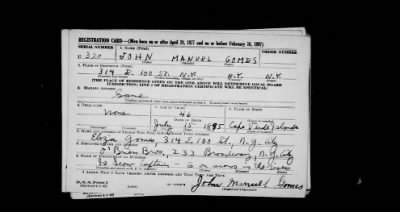 REGISTRATION CARD—(Men born on or after April 28, 1877 and on or before February 16, 1897)
SERIAL NUMBER 1. NAME (Print) ORDER NUMBER
U 320 JOHN MANUEL GOMES
2. PLACE OF RESIDENCE (Print)
314 E. 100 ST. N.Y. N.Y. N.Y.
[THE PLACE OF RESIDENCE GIVEN ON THE LINE ABOVE WILL DETERMINE LOCAL BOARD
JURISDICTION; LINE 2 OF REGISTRATION CERTIFICATE WILL BE IDENTICAL]
3. MAILING ADDRESS
Same
4. TELEPHONE
None 46
July 15 1895 Cape Verde Islands
Eliza Gomes, 314 E 100 St., N.Y. City
O'Brien Bros., 233 Broadway, N.Y. City
Scow Captain
John Manuel Gomes